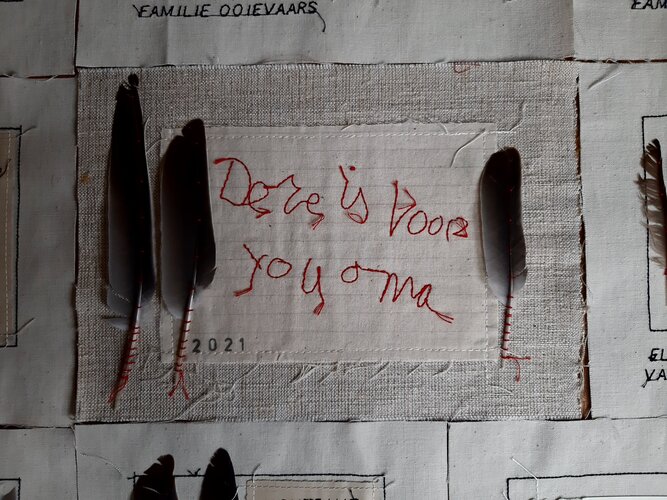 FAMILIE OOIEVAARS
Deze is voor
you oma
2021